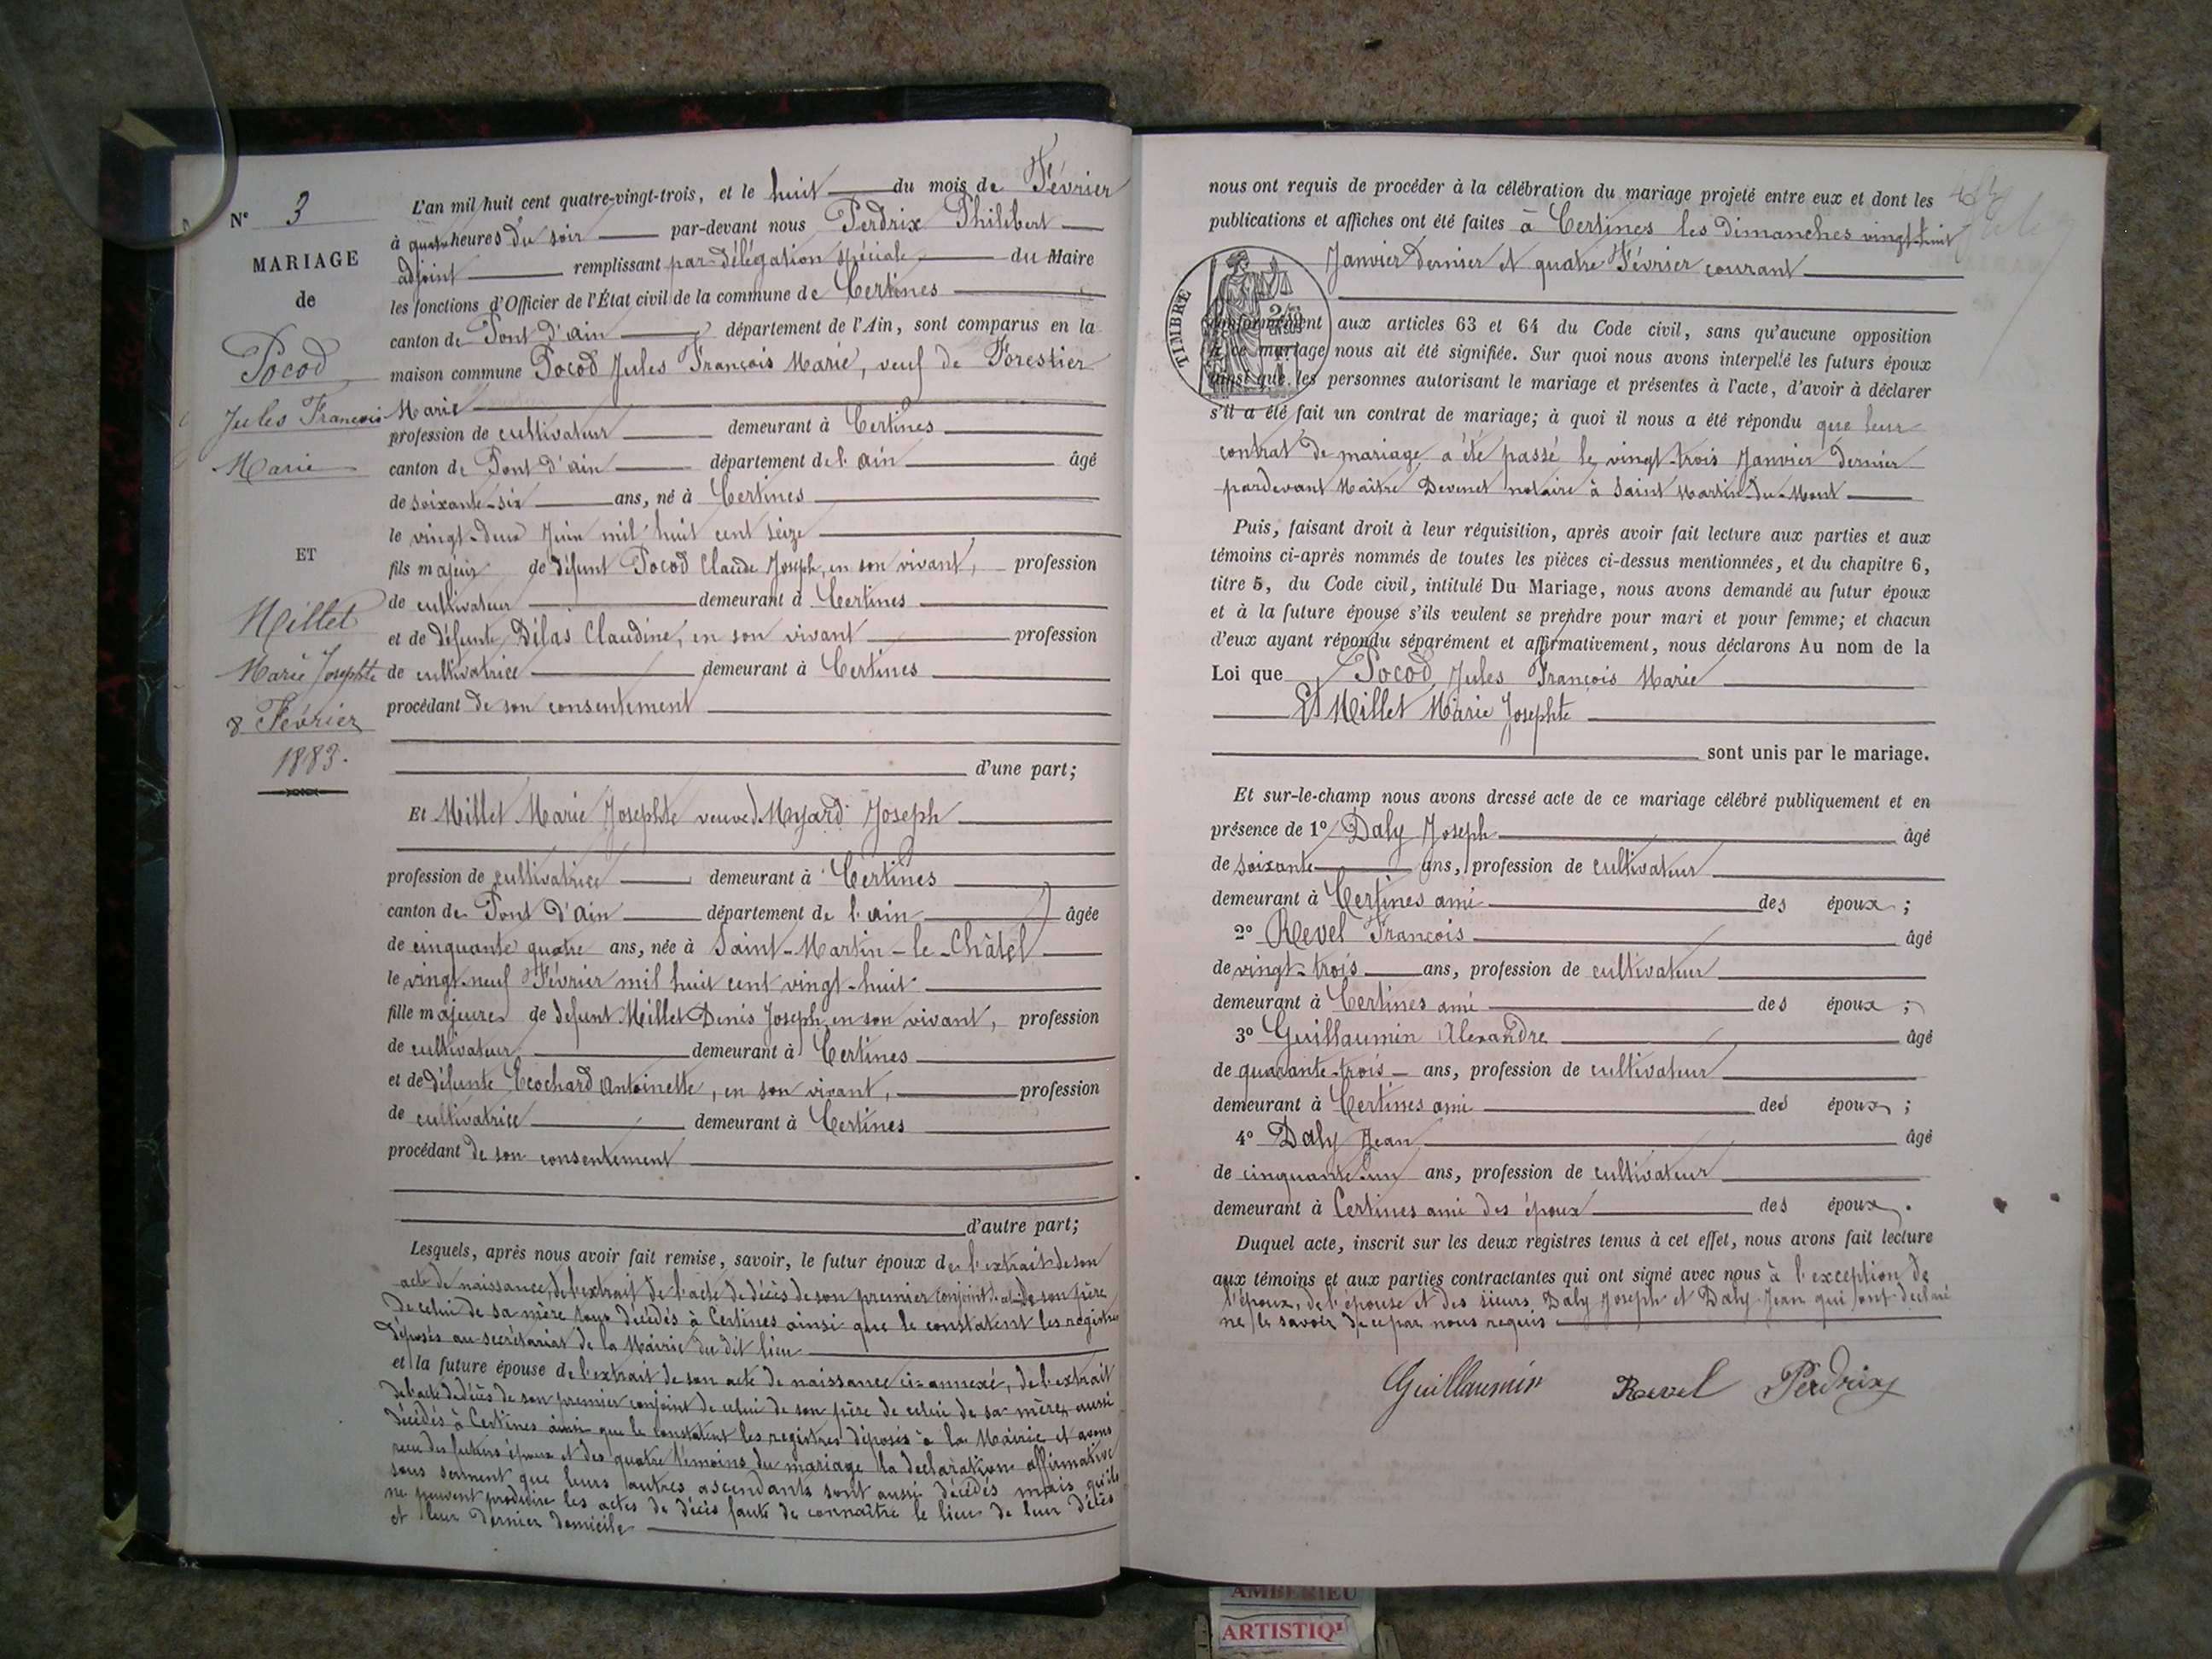 N° 3
MARIAGE
de
Pocod
Jules François
Marie
ET
Millet
Marie Josephte
8 Février
1883.
L'an mil huit cent quatre-vingt-trois, et le huit du mois de Février
à quatre heures du soir par-devant nous Perdrix Philibert
adjoint remplissant par délégation spéciale du Maire
les fonctions d'Officier de l'État civil de la commune de Certines
canton de Pont d'ain département de l'Ain, sont comparus en la
maison commune Pocod Jules François Marie, veuf de Forestier
Marie
profession de cultivateur demeurant à Certines
canton de Pont d'ain département de l'ain âgé
de soixante-six ans, né à Certines
le vingt-deux Juin mil huit cent seize
fils majeur de défunt Pocod Claude Joseph, en son vivant, profession
de cultivateur demeurant à Certines
et de défunte Délas Claudine, en son vivant profession
de cultivatrice demeurant à Certines
procédant de son consentement
d'une part;
Et Millet Marie Josephte veuve d Myard Joseph
profession de cultivatrice demeurant à Certines
canton de Pont d'ain département de l'ain âgée
de cinquante quatre ans, née à Saint-Martin-le-Châtel
le vingt-neuf Février mil huit cent vingt-huit
fille majeure de défunt Millet Denis Joseph, en son vivant, profession
de cultivateur demeurant à Certines
et de défunte Ecochard Antoinette, en son vivant, profession
de cultivatrice demeurant à Certines
procédant de son consentement
d'autre part;
Lesquels, après nous avoir fait remise, savoir, le futur époux de l'extrait de son
acte de naissance, de l'extrait de l'acte de décès de son premier conjoint de son père
de celui de sa mère tous décédés à Certines ainsi que le constatent les registres
déposés au secrétariat de la Mairie du dit lieu
et la future épouse de l'extrait de son acte de naissance ci-annexé, de l'extrait
de l'acte de décès de son premier conjoint de celui de son père de celui de sa mère aussi
décédés à Certines ainsi que le constatent les registres déposés à la Mairie et avons
reçu des futurs époux et des quatre témoins du mariage la déclaration affirmative
sous serment que leurs autres ascendants sont aussi décédés mais qu'ils
ne peuvent produire les actes de décès faute de connaître le lieu de leur décès
et leur dernier domicile
nous ont requis de procéder à la célébration du mariage projeté entre eux et dont les
publications et affiches ont été faites à Certines les dimanches vingt-huit
Janvier dernier et quatre Février courant
TIMBRE
conformément aux articles 63 et 64 du Code civil, sans qu'aucune opposition
à ce mariage nous ait été signifiée. Sur quoi nous avons interpellé les futurs époux
ainsi que les personnes autorisant le mariage et présentes à l'acte, d'avoir à déclarer
s'il a été fait un contrat de mariage; à quoi il nous a été répondu que leur
contrat de mariage a été passé le vingt-trois Janvier dernier
pardevant Maître Devenet notaire à Saint Martin-du-Mont
Puis, faisant droit à leur réquisition, après avoir fait lecture aux parties et aux
témoins ci-après nommés de toutes les pièces ci-dessus mentionnées, et du chapitre 6,
titre 5, du Code civil, intitulé Du Mariage, nous avons demandé au futur époux
et à la future épouse s'ils veulent se prendre pour mari et pour femme; et chacun
d'eux ayant répondu séparément et affirmativement, nous déclarons Au nom de la
Loi que Pocod Jules François Marie
Et Millet Marie Josephte
sont unis par le mariage.
Et sur-le-champ nous avons dressé acte de ce mariage célébré publiquement et en
présence de 1° Daly Joseph âgé
de soixante ans, profession de cultivateur
demeurant à Certines ami des époux ;
2° Revel François âgé
de vingt-trois ans, profession de cultivateur
demeurant à Certines ami des époux ;
3° Guillaumin Alexandre âgé
de quarante-trois ans, profession de cultivateur
demeurant à Certines ami des époux ;
4° Daly Jean âgé
de cinquante-un ans, profession de cultivateur
demeurant à Certines ami des époux des époux.
Duquel acte, inscrit sur les deux registres tenus à cet effet, nous avons fait lecture
aux témoins et aux parties contractantes qui ont signé avec nous à l'exception de
l'époux, de l'épouse et des sieurs Daly Joseph et Daly Jean qui ont déclaré
ne le savoir de ce par nous requis
Guillaumin Revel Perdrix
AMBERIEU
ARTISTIQ